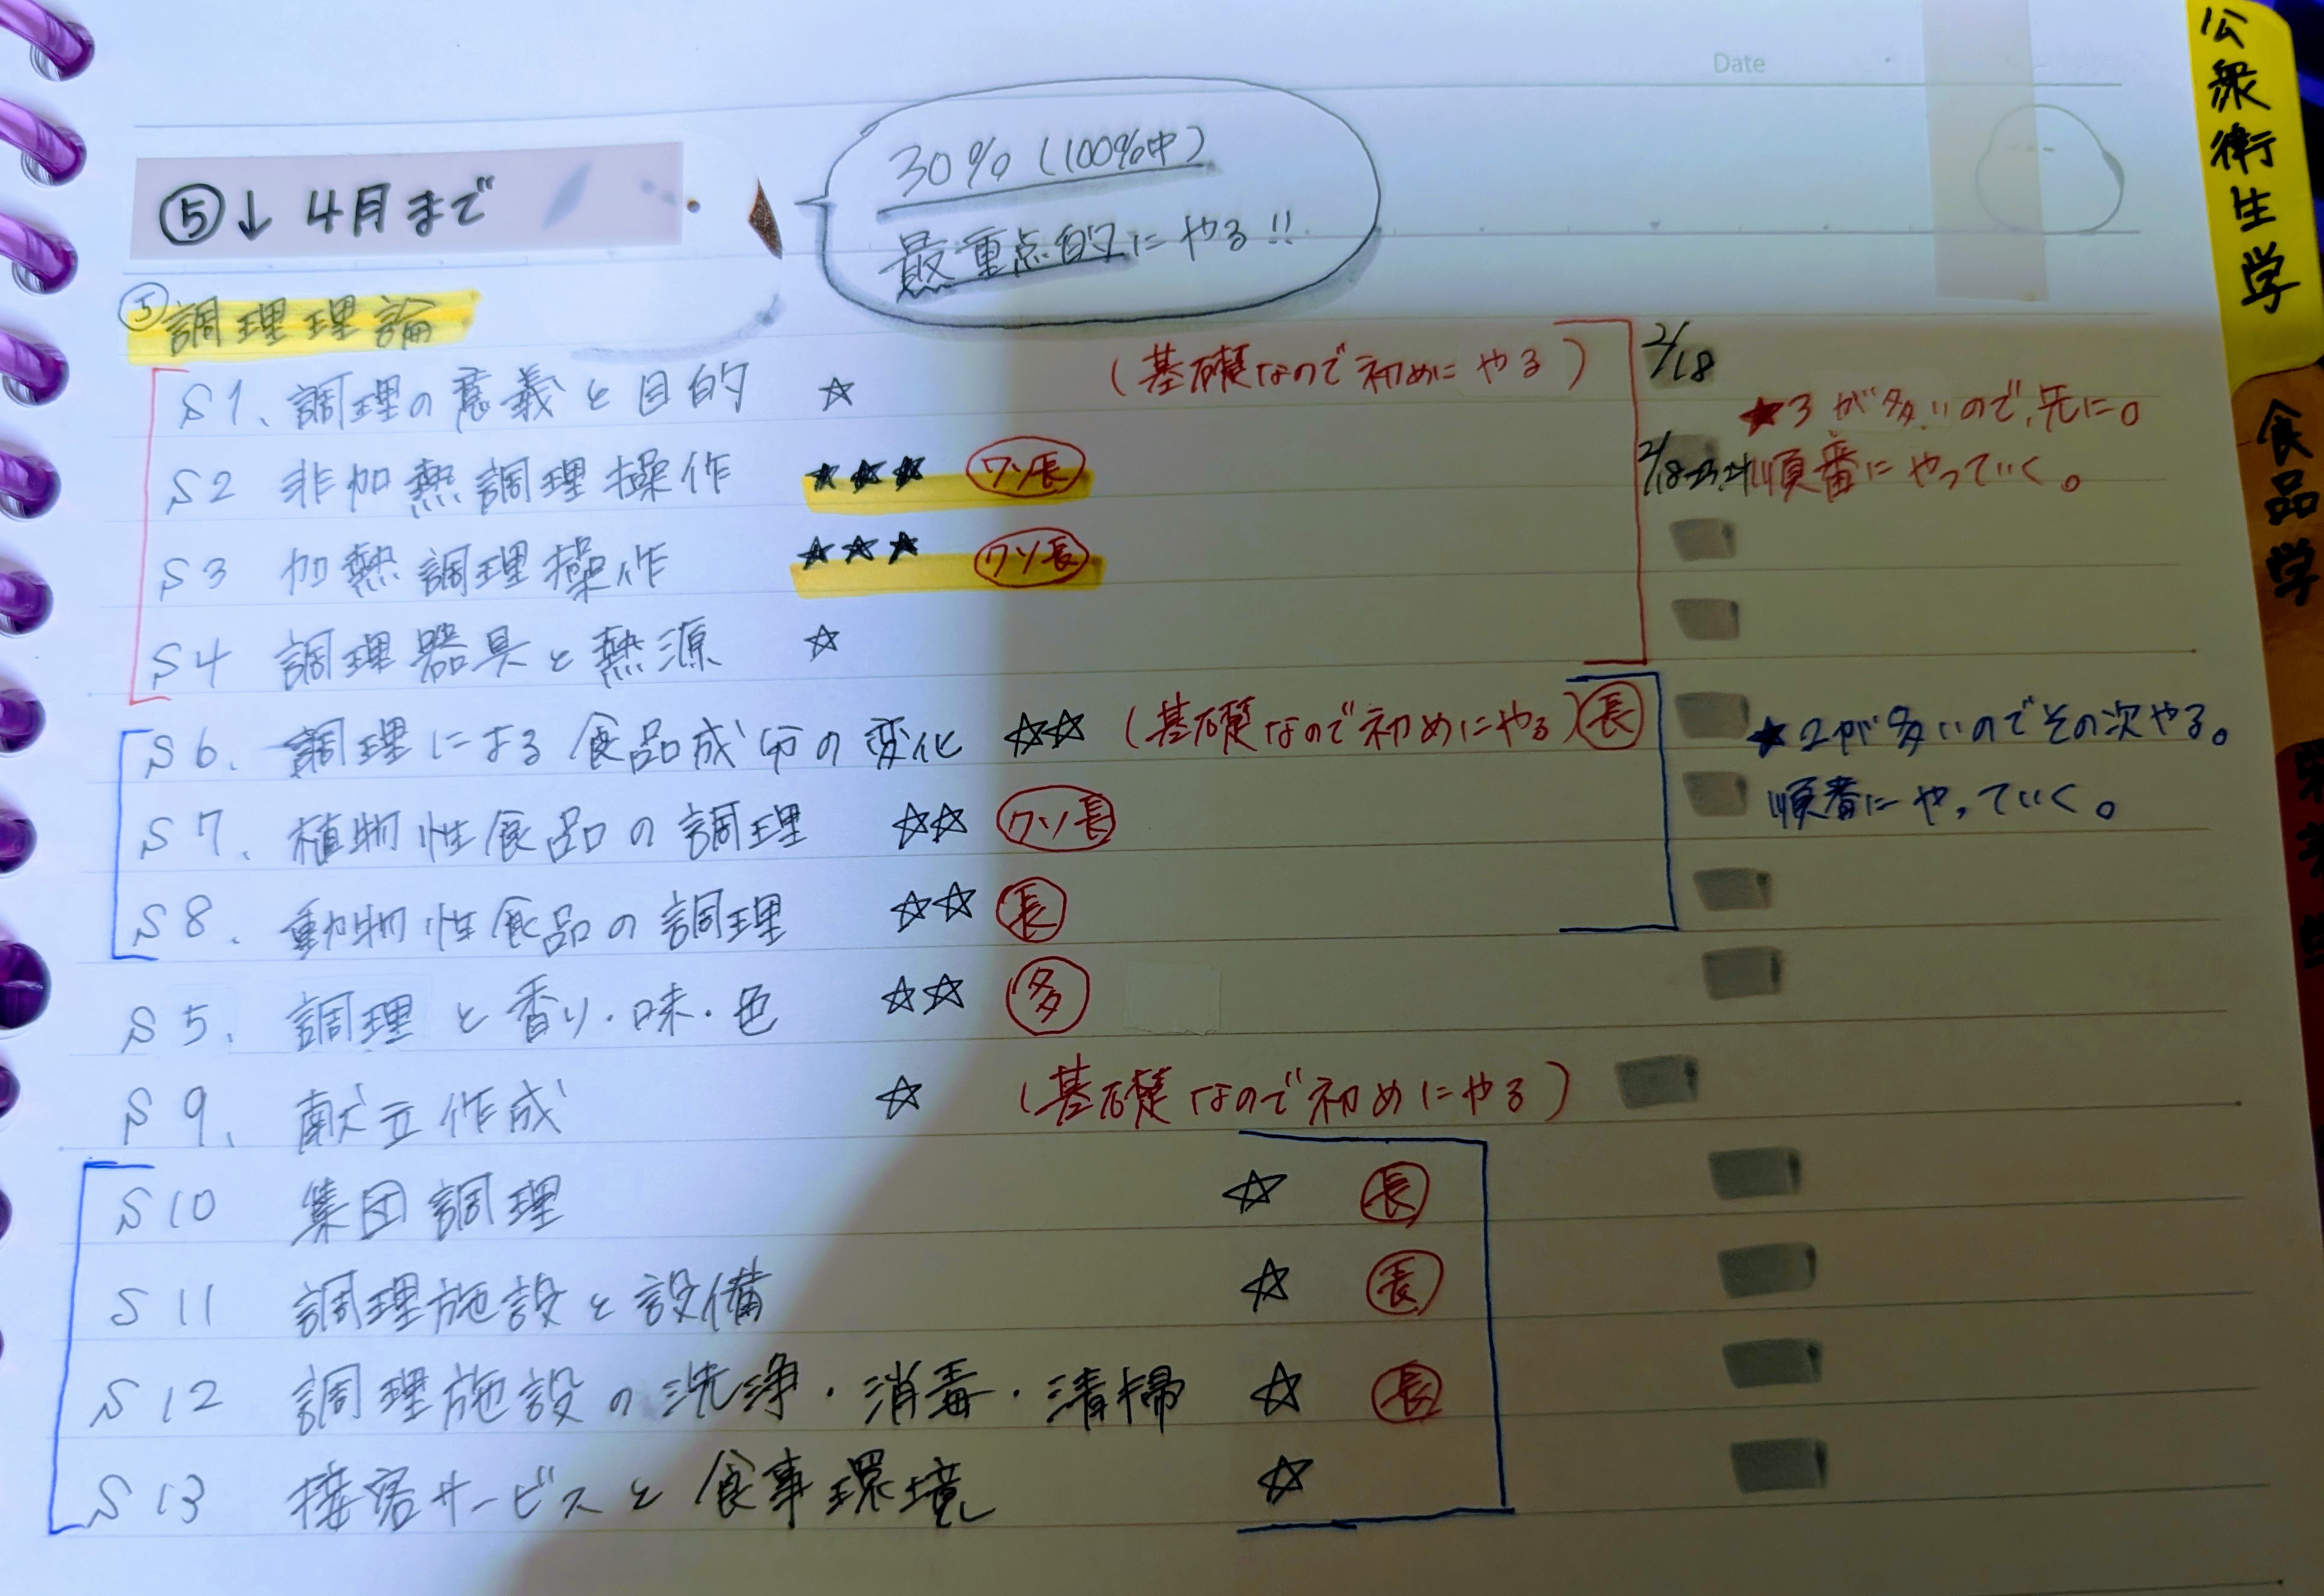 Date
⑤↓ 4月まで
30%(100%中)
最重点的にやる!!
⑤調理理論
S1、調理の意義と目的 ☆ (基礎なので初めにやる) 2/18
★3が多いので、先に。
S2 非加熱調理操作 ★★★ クソ長 2/18
順番にやっていく。
S3 加熱調理操作 ★★★ クソ長
S4 調理器具と熱源 ☆
S6、調理による食品成分の変化 ☆☆ (基礎なので初めにやる) 長
★2が多いのでその次やる。
S7、植物性食品の調理 ☆☆ クソ長
順番にやっていく。
S8、動物性食品の調理 ☆☆ 長
S5、調理と香り・味・色 ☆☆ 多
S9、献立作成 ☆ (基礎なので初めにやる)
S10 集団調理 ☆ 長
S11 調理施設と設備 ☆ 長
S12 調理施設の洗浄・消毒・清掃 ☆ 長
S13 接客サービスと食事環境 ☆
公衆衛生学
食品学